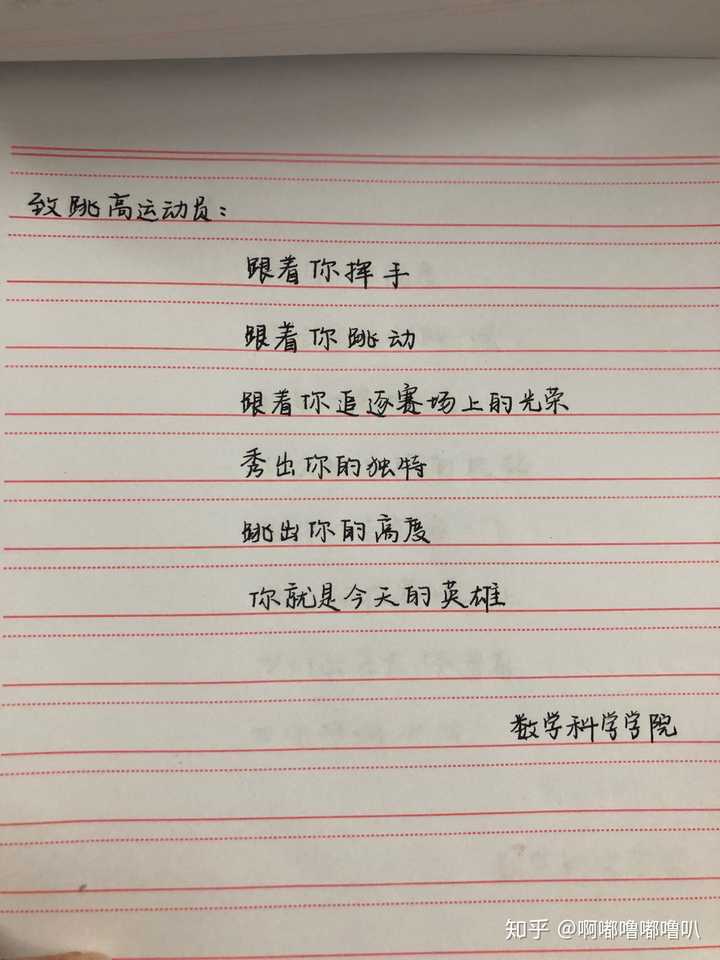 致跳高运动员：
跟着你挥手
跟着你跳动
跟着你追逐赛场上的光荣
秀出你的独特
跳出你的高度
你就是今天的英雄
数学科学学院
知乎 @啊嘟噜嘟噜叭